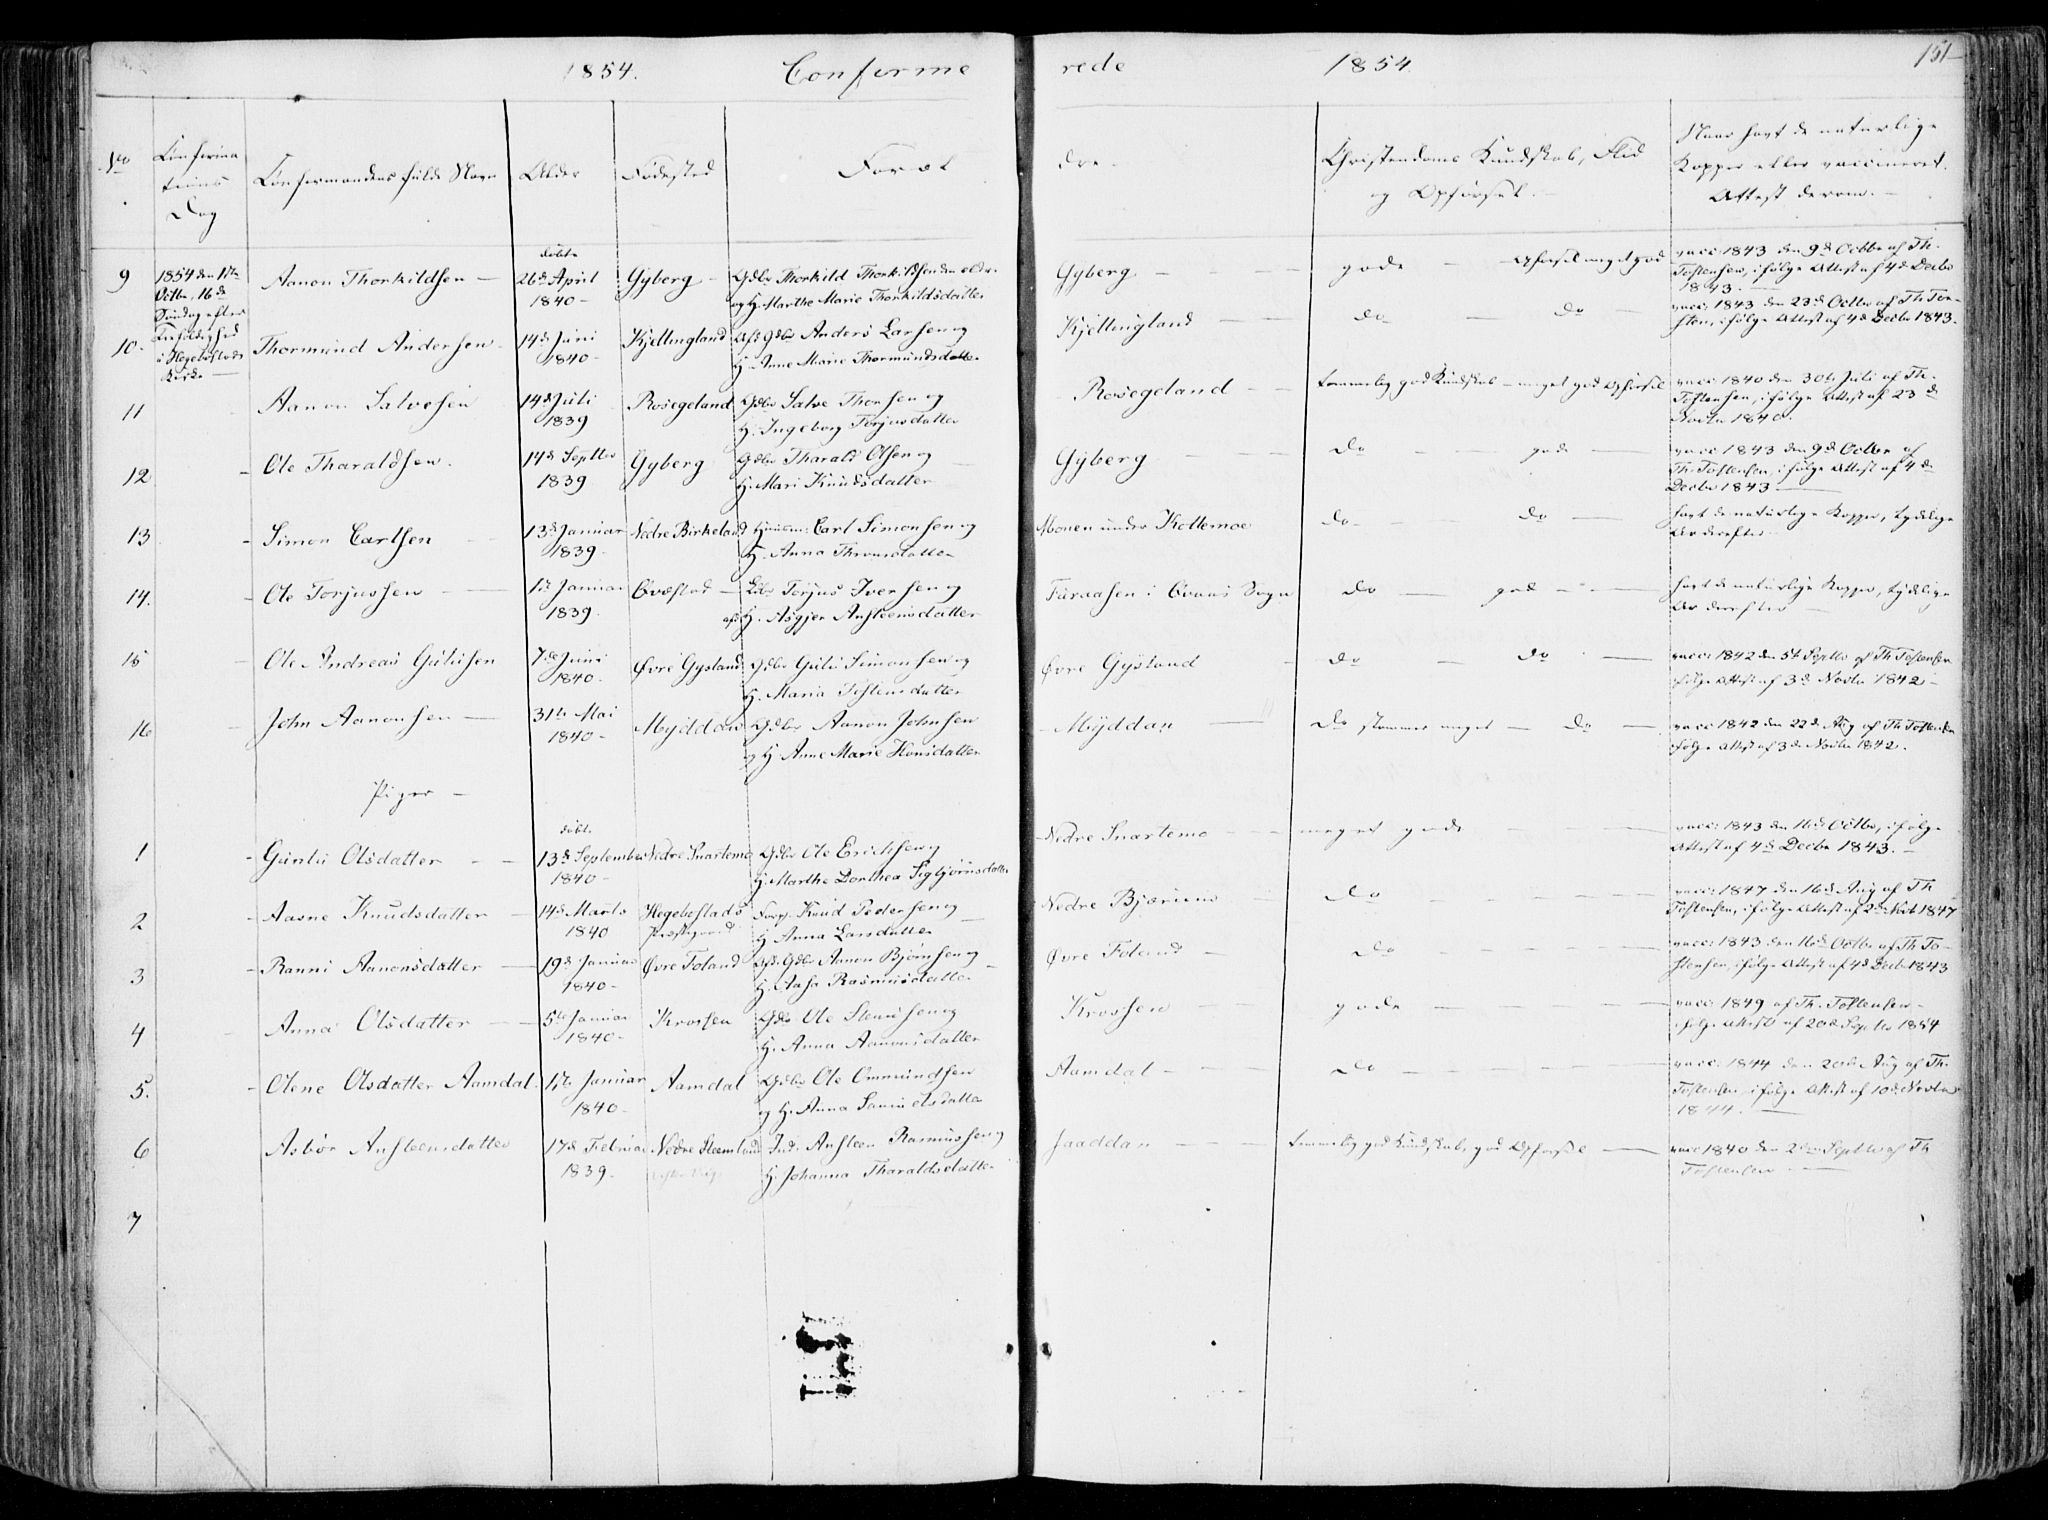 1854. Conferme rede 1854. 151
No
Conferma
tions
Dag
Confermandens fulde Navn
Alder
Fødested
Foræl dre.
Christendoms Kundskab, Flid
og Opførsel.
Naar havt de naturlige
Kopper eller vaccineret.
Attest derom.
9 1854 den 1ste
Octbr, 16de
Søndag efter
Trefoldighed
i Hegebostads
Kirke
Aanon Thorkildsen
døbt
26de April
1840
Gyberg
Gdbr Thorkild Thorkildsen den eldre
og H. Marthe Marie Thorkildsdatter
Gyberg
gode Opførsel meget god
vacc: 1843 den 9de Octbr af Th.
Tostensen, ifølge Attest af 4de Decbr
1843.
10. Thormund Andersen
14de Juni
1840
Kjellingland
Afd Gdbr Anders Larsen og
H. Anne Marie Thormundsdatter
Kjellingland
do do
vacc: 1843 den 23de Octbr af Th Tos-
sten, ifølge Attest af 4de Decbr 1843.
11 Aanon Salvesen
14de Juli
1839
Rosegeland
Gdbr Salve Thorsen og
H. Ingeborg Torjusdatter
Rosegeland
temmelig god Kundskab - meget god Opførsel
vacc: 1840 den 30te Juli af Th.
Tostensen, ifølge Attest af 23de
Novbr 1840.
12 Ole Tharaldsen.
14de Septbr
1839
Gyberg
Gdbr Tharald Olsen og
H. Mari Knudsdatter
Gyberg
do gode
vacc: 1843 den 9de Octbr af
Th. Tostensen, ifølge Attest af 4de
Decbr 1843
13 Simon Carlsen
13de Januar
1839.
Nedre Birkeland
Huusm: Carl Simonsen og
H. Anna Thronsdatter
Monen under Kollemoe
do do
havt de naturlige Kopper, tydelige
Ar derefter
14. Ole Torjussen
1ste Januar
1839.
Qvæstad
Ldbr Torjus Iversen og
afd H. Asgjer Ansteensdatter
Furaasen i Qvaas Sogn
do god
havt de naturlige Kopper, tydelige
Ar derefter
15 Ole Andreas Gulusen
7de Juni
1840.
Øvre Gysland
Gdbr Gulu Simonsen og
H. Maria Tostensdatter
Øvre Gysland
do do
vacc: 1842 den 5te Septbr af Th Tostensen
ifølge Attest af 3de Novbr 1842
16 John Aanonsen
31te Mai
1840
Myddan
Gdbr Aanon Johnsen
og H. Anne Marie Hansdatter
Myddan
do stammer meget do
vacc: 1842 den 22de Aug af Th Tostensen
ifølge Attest af 3de Novbr 1842.
Piger
1 Guntu Olsdatter
døbt
13de September
1840
Nedre Snartemo
Gdbr Ole Erichsen og
H. Marthe Dorthea Sigbjørnsdatter
Nedre Snartemo
meget gode
vacc: 1843 den 16de Octbr, ifølge
Attest af 4de Decbr 1843.
2 Aasne Knudsdatter
14de Marts
1840
Hegebostads
Præstegaard
Forp. Knud Pedersen og
H. Anna Larsdatter
Nedre Bjærum
do
vacc: 1847 den 16de Aug af Th
Tostensen, ifølge Attest af 2de Novb 1847
3 Ranni Aanonsdatter
19de Januar
1840
Øvre Foland
Afd. Gdbr Aanon Bjørnsen og
H. Aasa Rasmusdatter
Øvre Foland
do
vacc: 1843 den 16de Octbr af Th To-
stensen, ifølge Attest af 4de Decbr 1843
4 Anna Olsdatter
5te Januar
1840
Krossen
Gdbr Ole Steensen og
H. Anna Aanonsdatter
Krossen
gode
vacc: 1849 af Th. Tostensen
ifølge Attest af 20de Septbr 1854
5. Olene Olsdatter Aamdal.
17de Januar
1840
Aamdal
Gdbr Ole Ommundsen
og H. Anna Samuelsdatter
Aamdal
do
vacc: 1844 den 20de Aug af Th.
Tostensen, ifølge Attest af 10de Novbr
1844.
6 Asbør Ansteensdatter
17de Februar
1839.
Nedre Steensland
Inds. Ansteen Rasmussen og
H. Johanna Tharaldsdatter
Jaaddan
temmelig god Kundskab, god Opførsel
vacc 1840 den 2den Septbr af Th
Tostensen
7